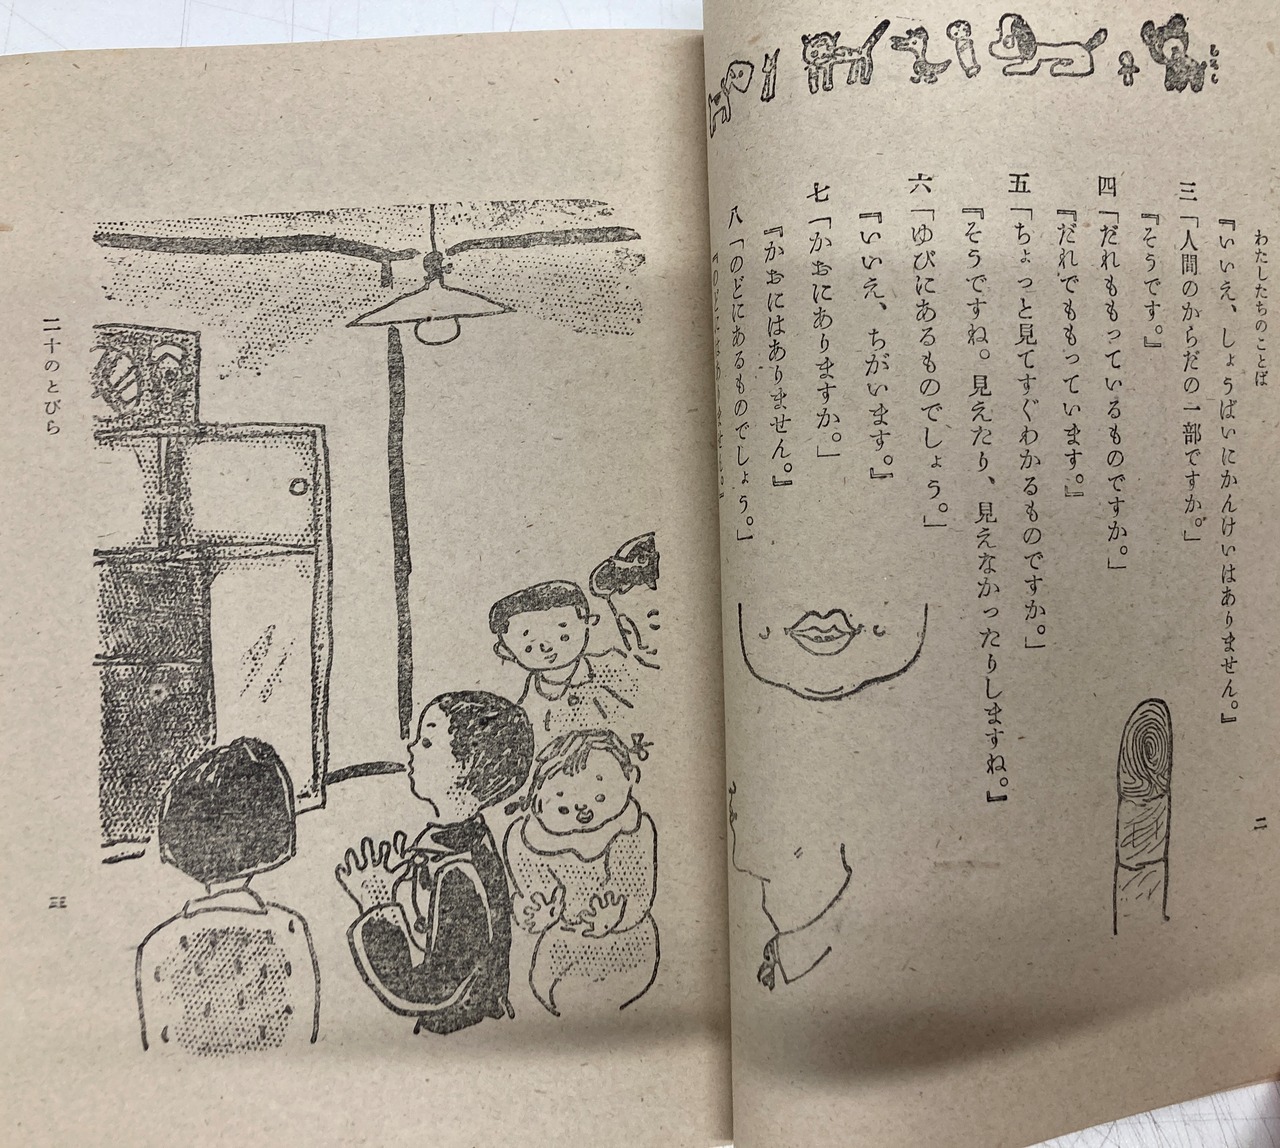 わたしたちのことば
二
『いいえ、しょうばいにかんけいはありません。』
三「人間のからだの一部ですか。」
『そうです。』
四「だれももっているものですか。」
『だれでももっています。』
五「ちょっと見てすぐわかるものですか。」
『そうですね。見えたり、見えなかったりしますね。』
六「ゆびにあるものでしょう。」
『いいえ、ちがいます。』
七「かおにありますか。」
『かおにはありません。』
八「のどにあるものでしょう。」
『のどにはありません。』
二十のとびら
三